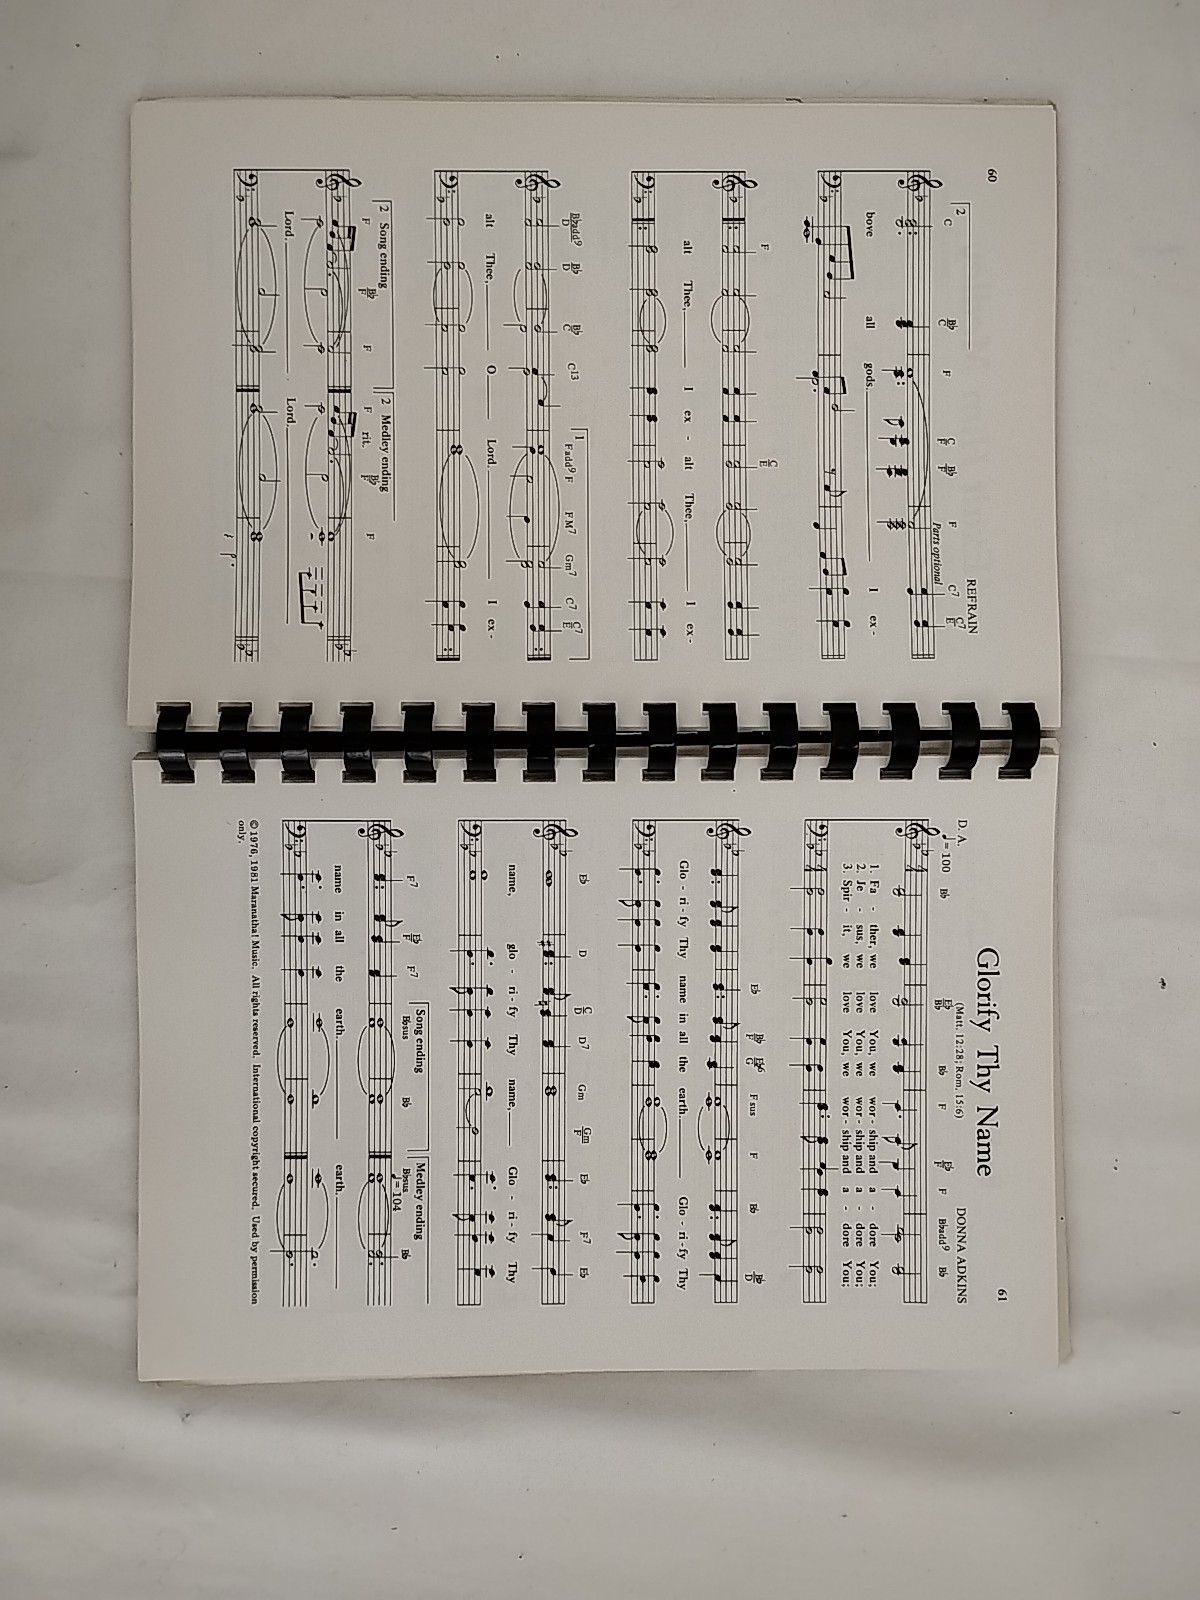 60
REFRAIN
2
C B♭/C F C/F B♭/F F Parts optional C7 C7/E
bove all gods. I ex-
F C/E
alt Thee, I ex - alt Thee, I ex-
1
B♭add9/D B♭/D B♭/C C13 Fadd9 F FM7 Gm7 C7 C7/E
alt Thee, O Lord. I ex-
2 Song ending 2 Medley ending
F B♭/F F F rit. B♭/F F
Lord. Lord.
61
Glorify Thy Name
(Matt. 12:28; Rom. 15:6)
D. A. DONNA ADKINS
♩= 100 B♭ E♭/B♭ B♭ F E♭/F F B♭add9 B♭
1. Fa - ther, we love You, we wor - ship and a - dore You;
2. Je - sus, we love You, we wor - ship and a - dore You;
3. Spir - it, we love You, we wor - ship and a - dore You;
E♭ B♭/F E♭6/G F sus F B♭ B♭/D
Glo - ri - fy Thy name in all the earth. Glo - ri - fy Thy
E♭ D C/D D7 Gm Gm/F E♭ F7 E♭
name, glo - ri - fy Thy name, Glo - ri - fy Thy
Song ending Medley ending
♩= 104
F7 E♭/F F7 B♭sus B♭ B♭sus B♭
name in all the earth. earth.
© 1976, 1981 Maranatha! Music. All rights reserved. International copyright secured. Used by permission
only.